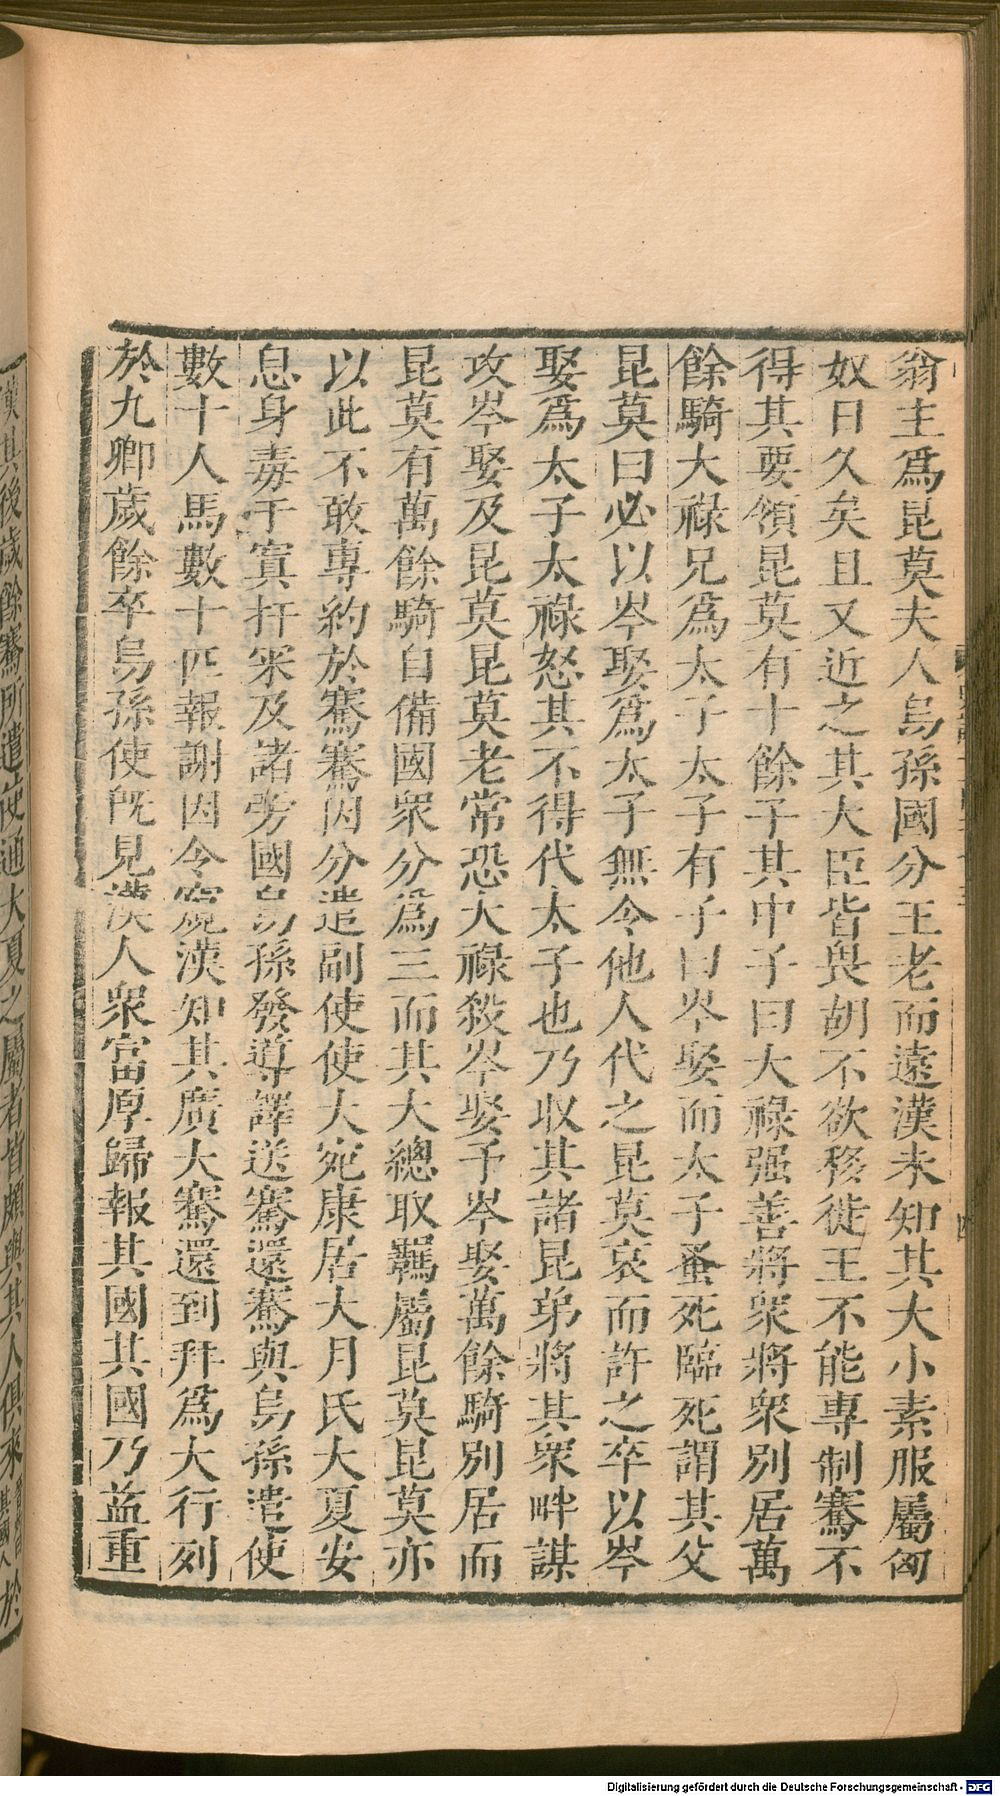 翁主爲昆莫夫人烏孫國分王老而遠漢未知其大小素服屬匈
奴日久矣且又近之其大臣皆畏胡不欲移徙王不能專制騫不
得其要領昆莫有十餘子其中子曰大祿强善將衆將衆別居萬
餘騎大祿兄爲太子太子有子曰岑娶而太子蚤死臨死謂其父
昆莫曰必以岑娶爲太子無令他人代之昆莫哀而許之卒以岑
娶爲太子太祿怒其不得代太子也乃收其諸昆弟將其衆畔謀
攻岑娶及昆莫昆莫老常恐大祿殺岑娶予岑娶萬餘騎別居而
昆莫有萬餘騎自備國衆分爲三而其大總取羈屬昆莫昆莫亦
以此不敢專約於騫騫因分遣副使使大宛康居大月氏大夏安
息身毒于窴扜冞及諸旁國烏孫發導譯送騫還騫與烏孫遣使
數十人馬數十匹報謝因令窺漢知其廣大騫還到拜爲大行列
於九卿歲餘卒烏孫使旣見漢人衆富厚歸報其國其國乃益重
漢其後歲餘騫所遣使通大夏之屬者皆頗與其人俱來
其國人
於
Digitalisierung gefördert durch die Deutsche Forschungsgemeinschaft - DFG